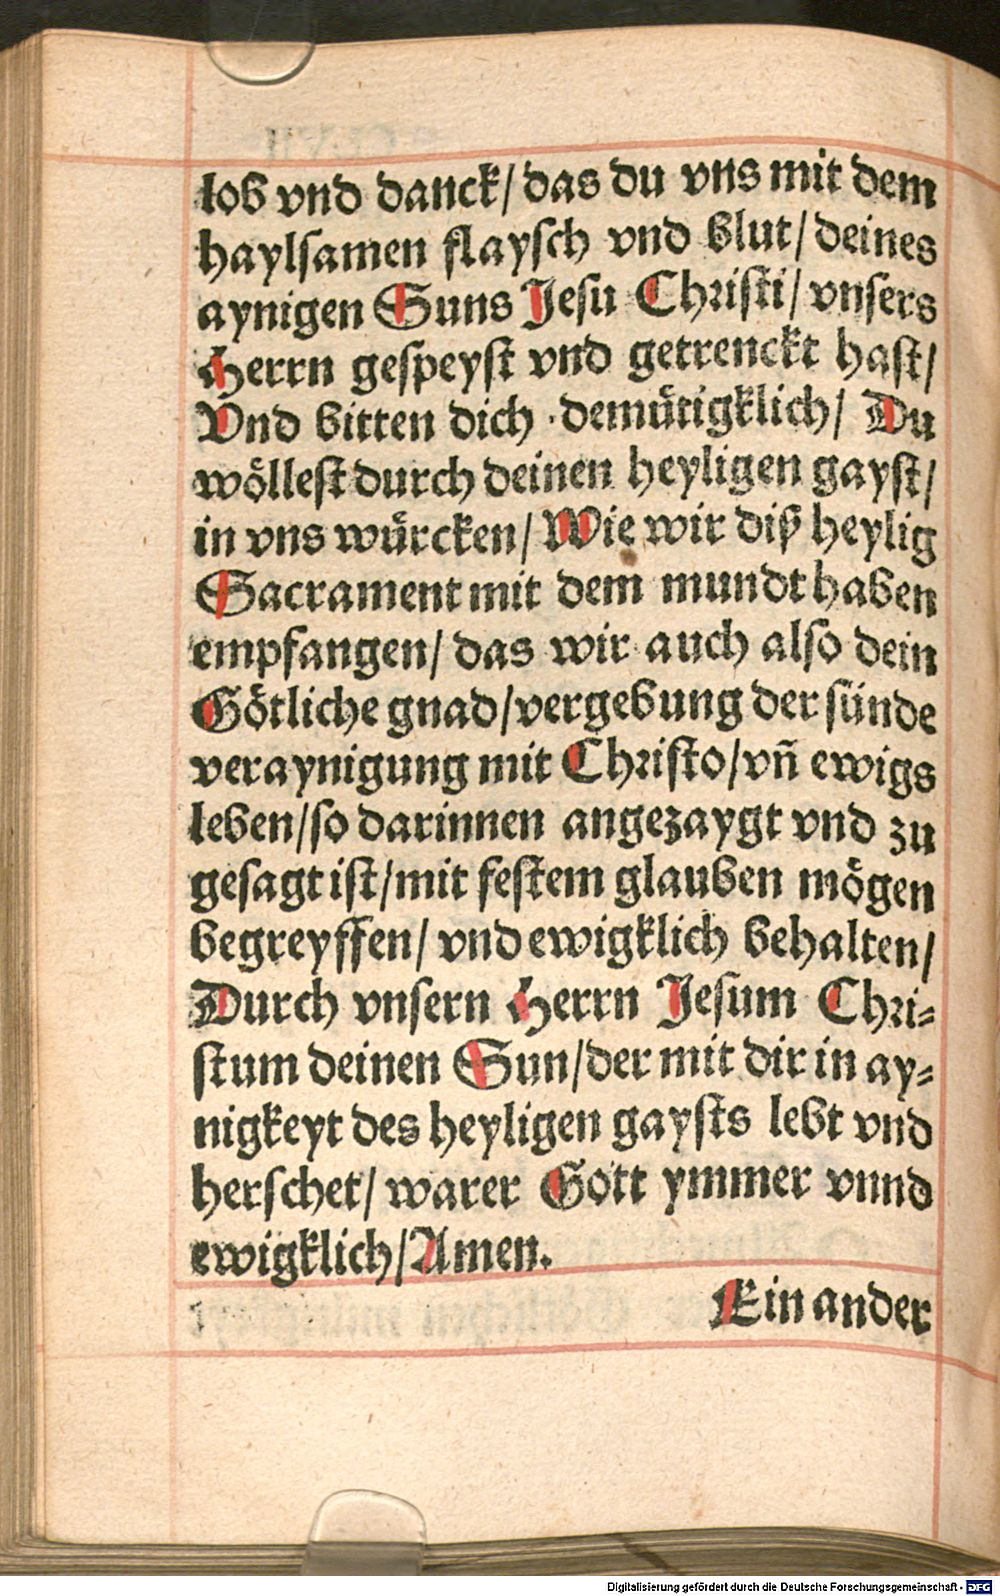 lob vnd danck/ das du vns mit dem
haylsamen flaysch vnd blut/ deines
aynigen Suns Jesu Christi/ vnsers
Herrn gespeyst vnd getrenckt hast/
Vnd bitten dich demütigklich/ Du
wöllest durch deinen heyligen gayst/
in vns würcken/ Wie wir diß heylig
Sacrament mit dem mundt haben
empfangen/ das wir auch also dein
Götliche gnad/ vergebung der sünde
veraynigung mit Christo/ vñ ewigs
leben/ so darinnen angezaygt vnd zu
gesagt ist/ mit festem glauben mögen
begreyffen/ vnd ewigklich behalten/
Durch vnsern Herrn Jesum Chri⸗
stum deinen Sun/ der mit dir in ay⸗
nigkeyt des heyligen gaysts lebt vnd
herschet/ warer Gott ymmer vnnd
ewigklich/ Amen.
Ein ander
Digitalisierung gefördert durch die Deutsche Forschungsgemeinschaft - DFG